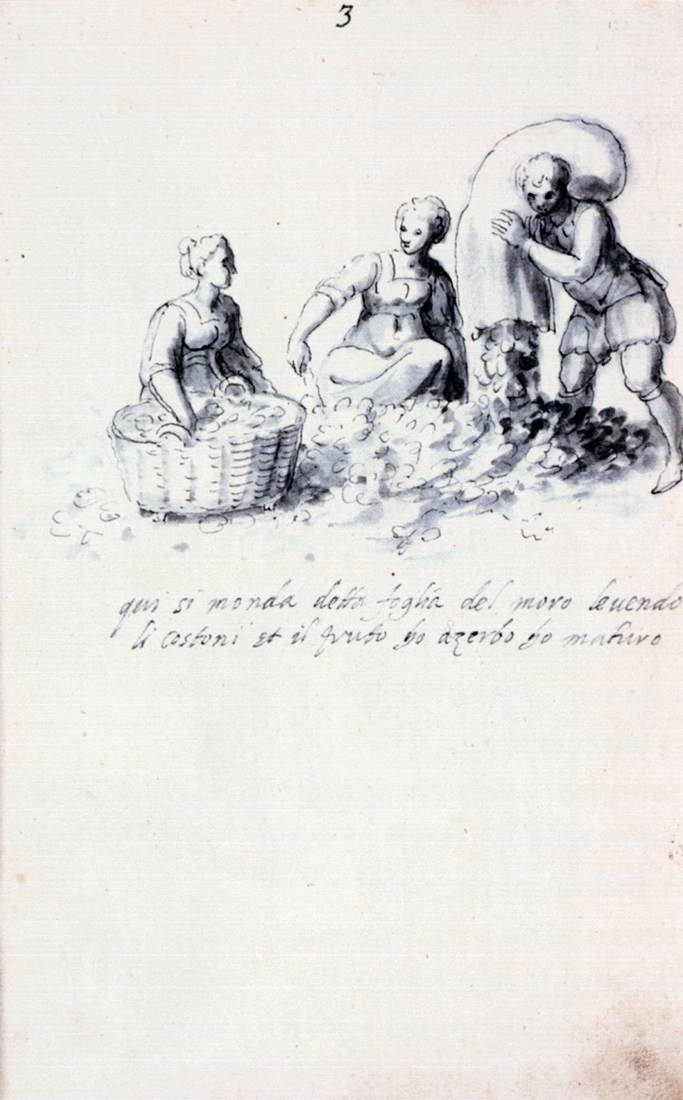 3
qui si monda detta foglia del moro leuendo
li costoni et il fruto ho azerbo ho maturo